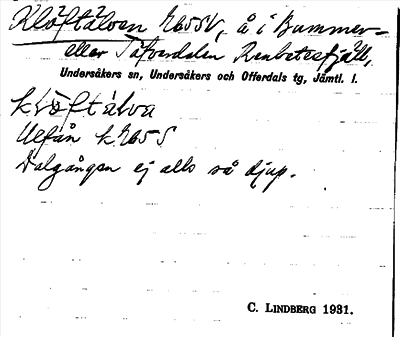 Klöftälven K65SV, å i Bummer-
eller Tåfvardalen Renbetesfjäll,
Undersåkers sn, Undersåkers och Offerdals tg, Jämtl. l.
klöftälva
Ulfån k K65S
Dalgången ej alls så djup.
C. LINDBERG 1931.